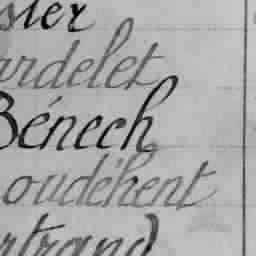 ster
ardelet
Bénech
oudéhent
rtrand